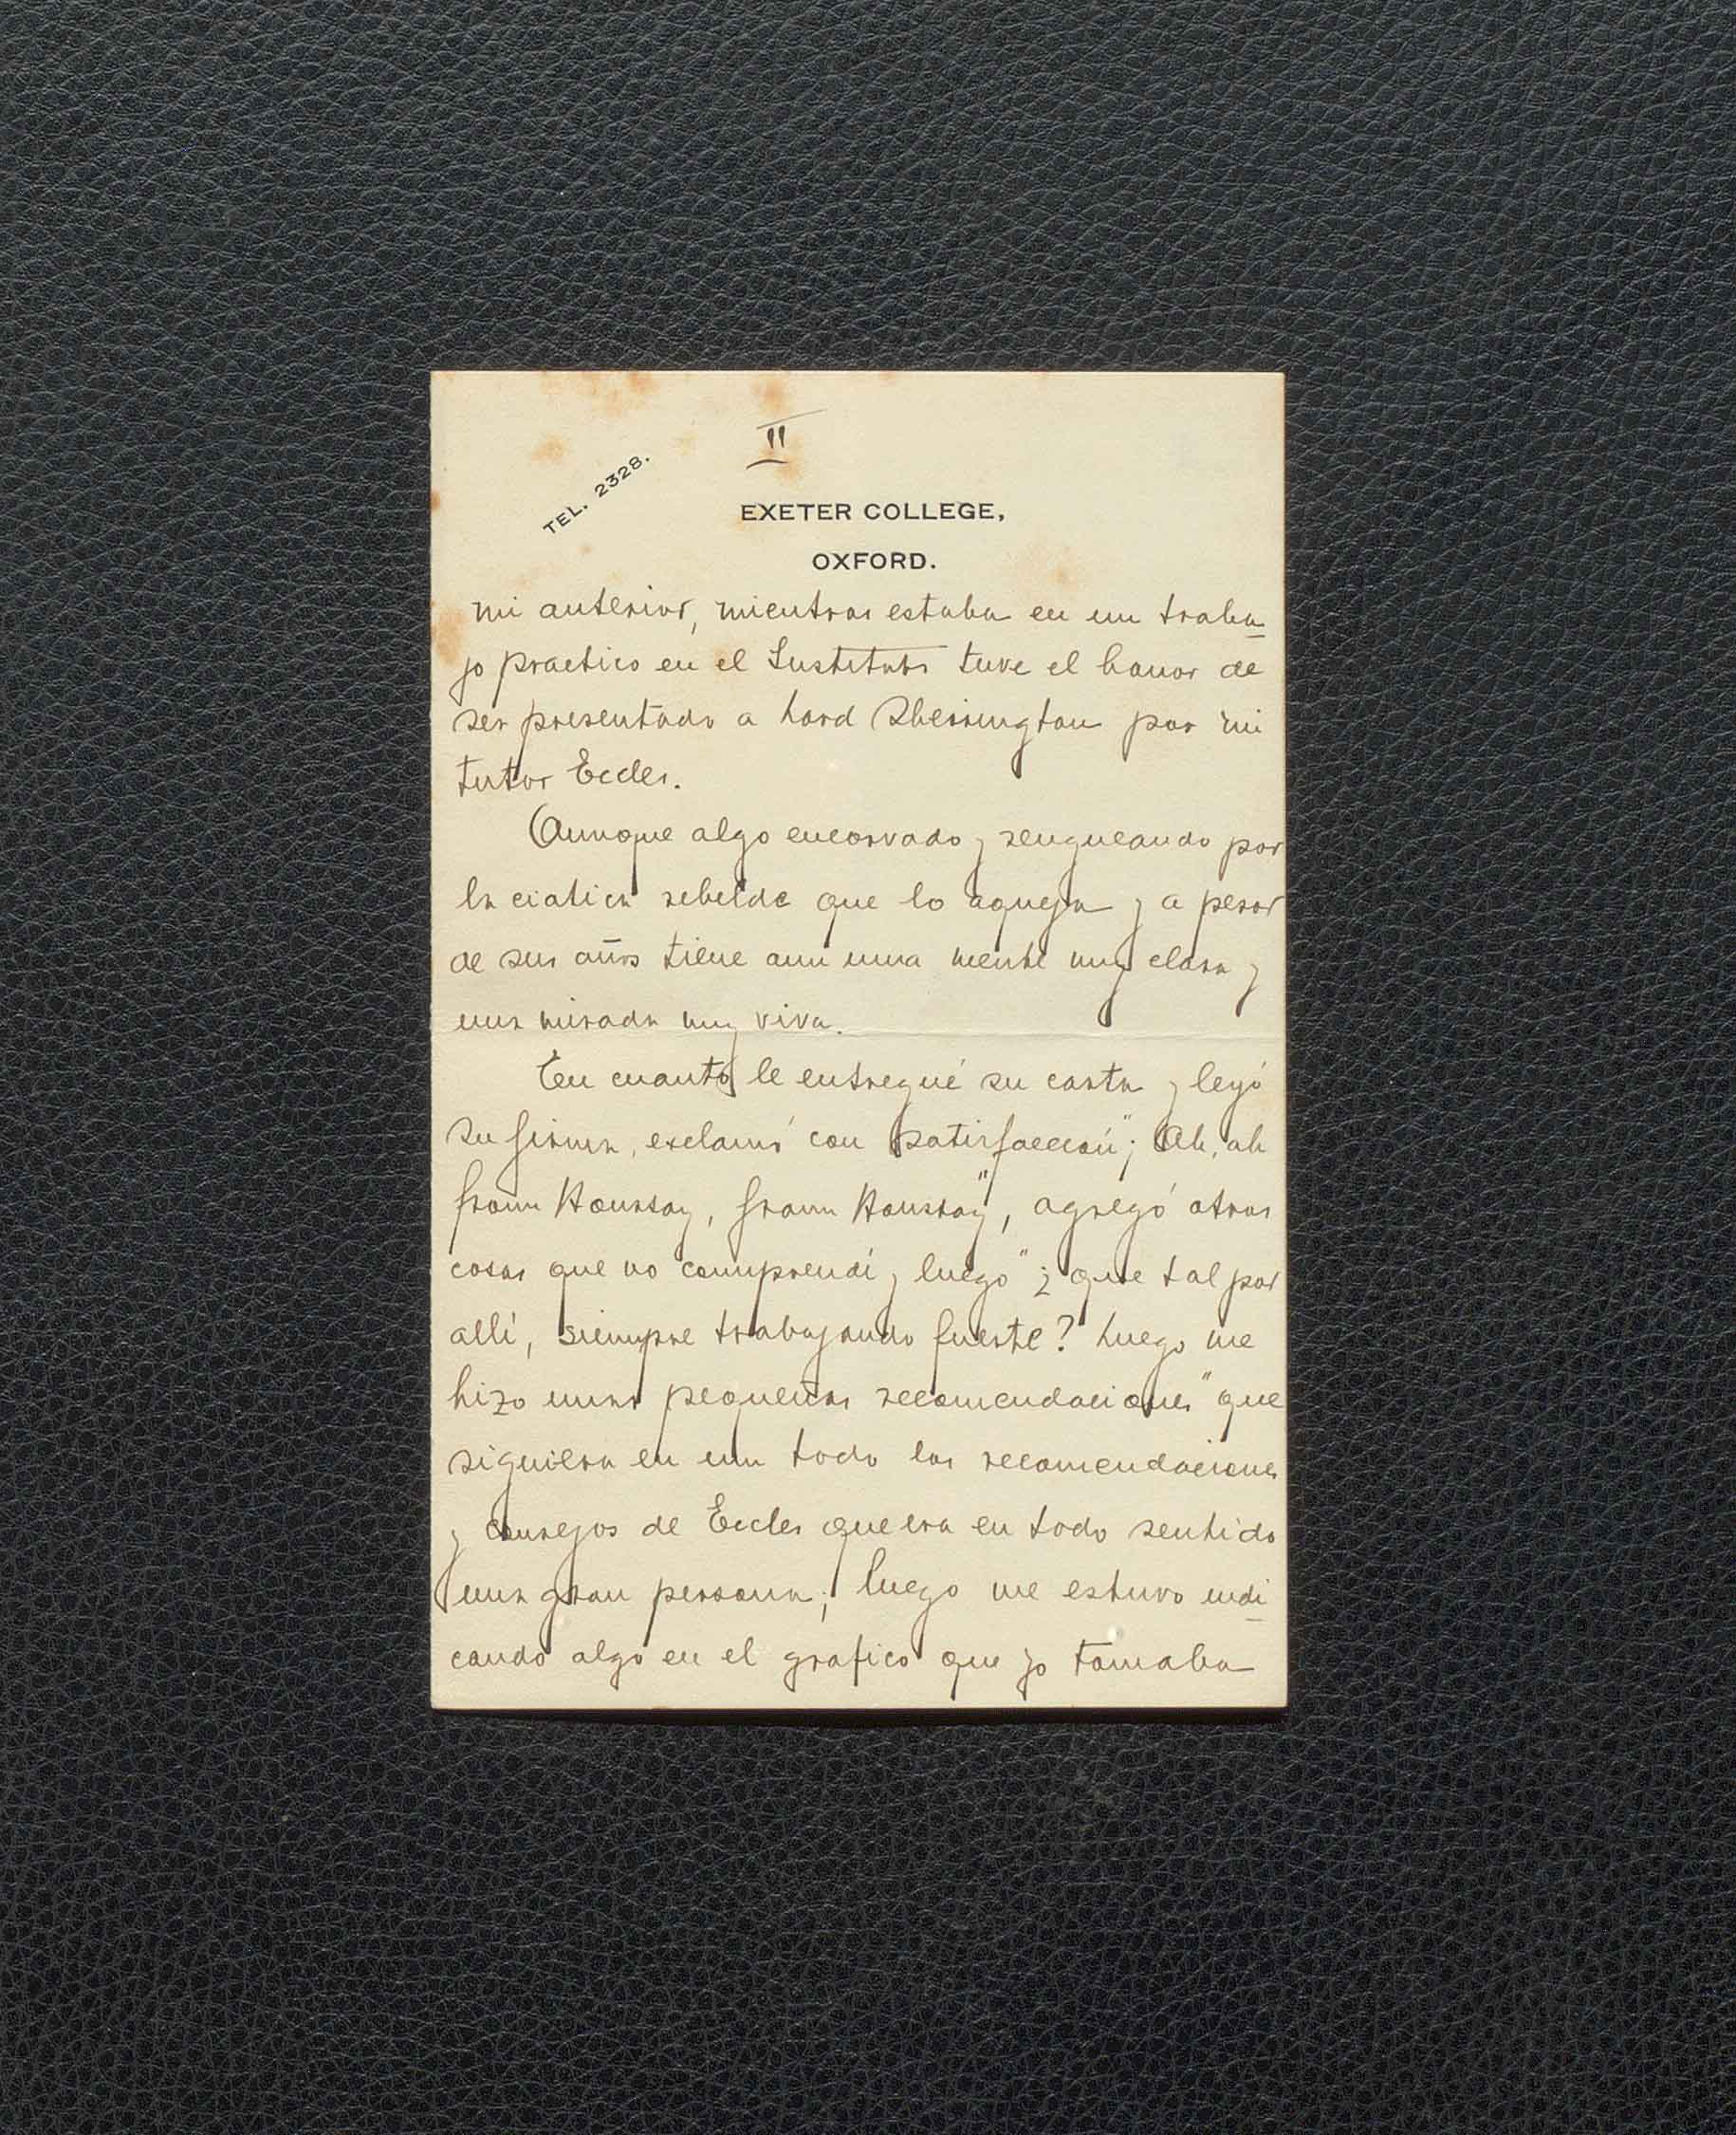 II
TEL. 2328.
EXETER COLLEGE,
OXFORD.
mi anterior, mientras estaba en un traba
jo practico en el Instituto tuve el honor de
ser presentado a Lord Sherrington por mi
tutor Eccles.
Aunque algo encorvado y rengueando por
la ciatica rebelde que lo aqueja y a pesar
de sus años tiene aun una mente muy clara y
una mirada muy viva.
En cuanto le entregué su carta y leyó
su firma, exclamó con satisfacción "; Ah, ah
from Houssay, from Houssay", agregó otras
cosas que no comprendí y luego "¿ que tal por
allí, siempre trabajando fuerte? Luego me
hizo unas pequeñas recomendaciones" que
siguiera en un todo las recomendaciones
y consejos de Eccles que era en todo sentido
una gran persona; luego me estuvo indi
cando algo en el grafico que yo tomaba